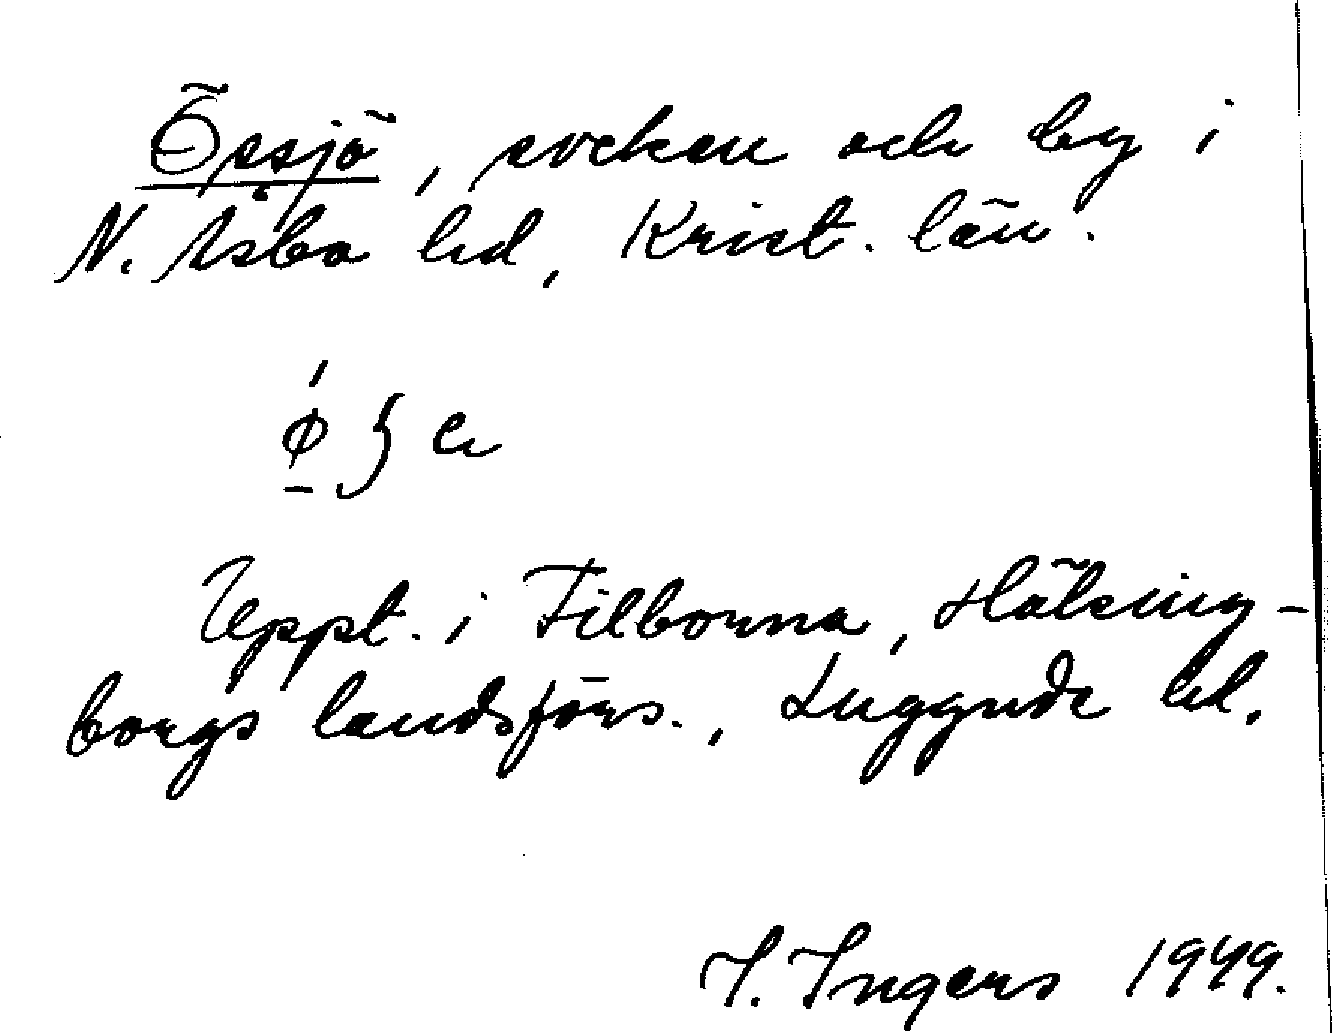 Össjö, socken och by i
N. Åsbo hd, Krist. län.
Uppt. i Filborna, Hälsing-
borgs landsförs., Luggude hd.
I. Ingers 1949.